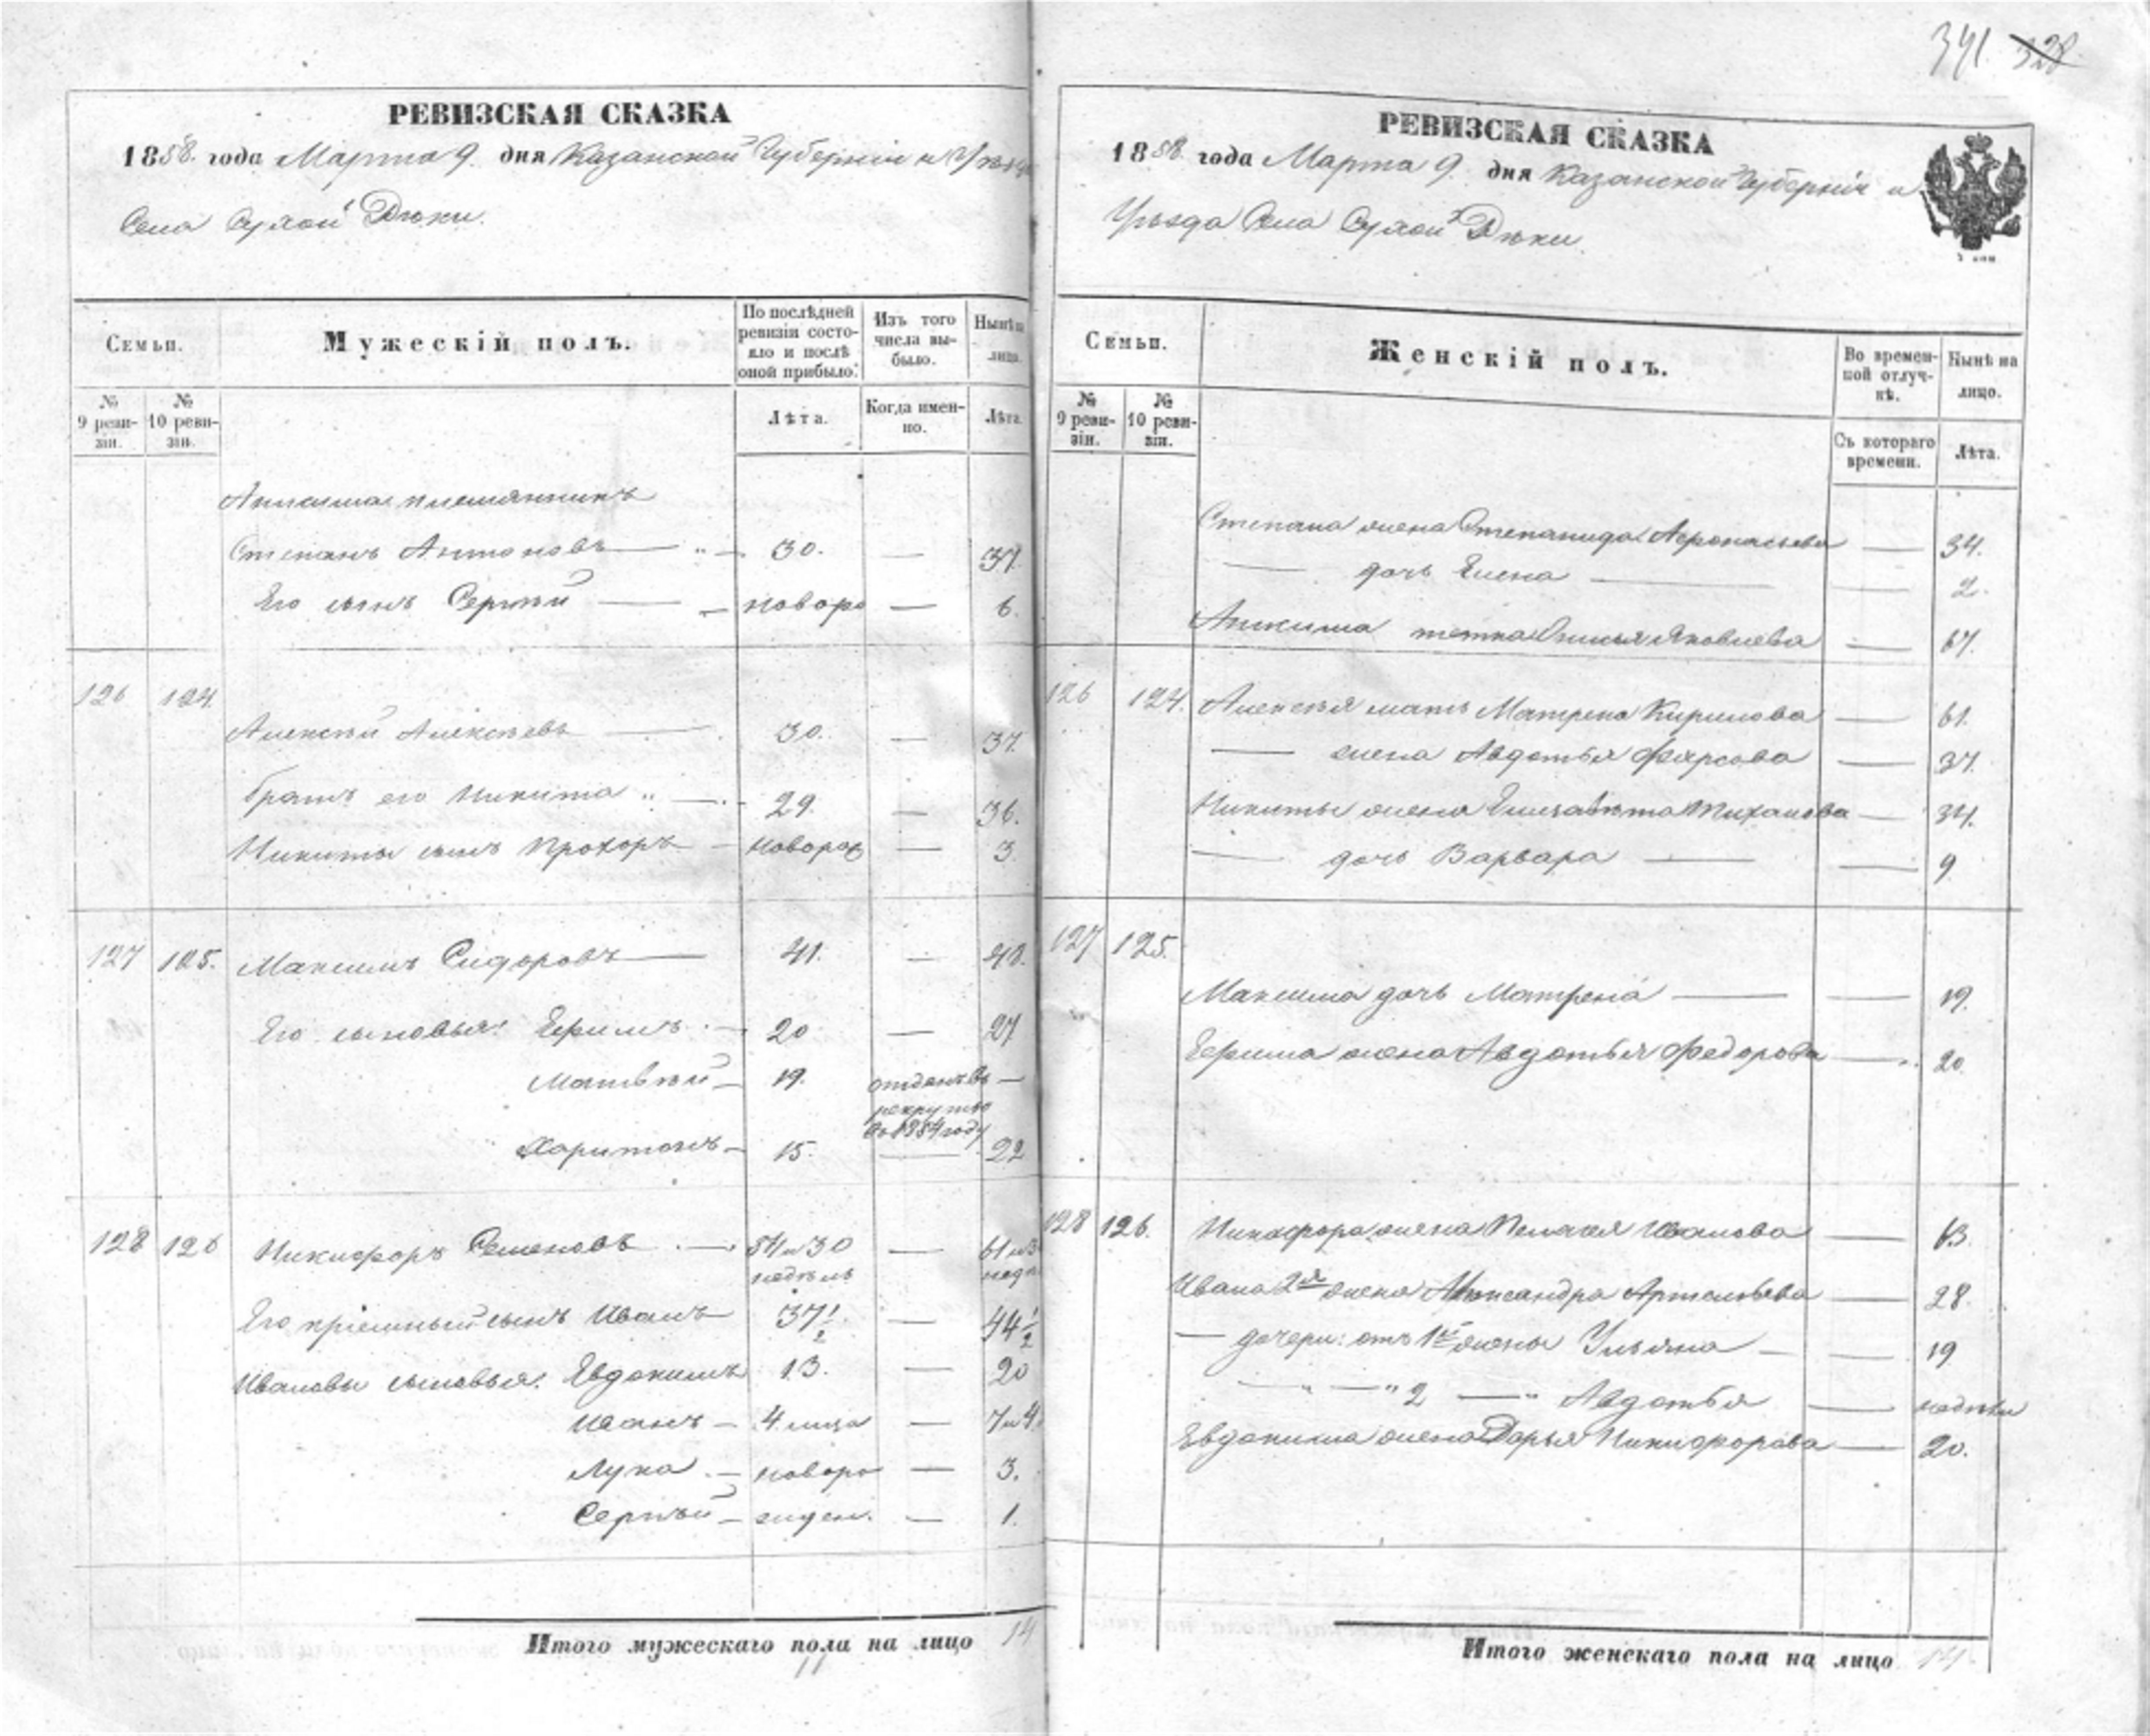 341. 328
РЕВИЗСКАЯ СКАЗКА
1858. года Марта 9. дня Казанской Губерніи и Уѣзда
Села Сухой Рѣки.
Семьи.
Мужескій полъ.
По послѣдней ревизіи состояло и послѣ оной прибыло.
Изъ того числа выбыло.
Нынѣ на лицо.
№ 9 ревизіи.
№ 10 ревизіи.
Лѣта.
Когда именно.
Лѣта.
племянникъ
Степанъ Антоновъ — 30. — 37.
Его сынъ Сергѣй — новоро — 6.
126 124.
Алексѣй Алексѣевъ — 30. — 37.
братъ его Никита — 29. — 36.
Никиты сынъ Прохоръ — новорож — 3
127 125. Максимъ Сидоровъ — 41. — 48.
Его сыновья: Ефимъ — 20 — 27
Матвѣй — 19. отданъ въ —
рекруты
въ 1854 году
Харитонъ — 15. — 22
128 126 Никифоръ Семеновъ — 54 и 30 — 61 и 3
недѣль недѣ
Его пріемный сынъ Иванъ 37 1/2 — 44 1/2
Ивановы сыновья: Евдокимъ 13. — 20
Иванъ — 4 мца — 7 и 4
Лука — новоро — 3.
Сергѣй — жден. — 1.
Итого мужескаго пола на лицо 14
11
РЕВИЗСКАЯ СКАЗКА
1858 года Марта 9. дня Казанской Губерніи и
Уѣзда Села Сухой Рѣки.
Семьи.
Женскій полъ.
Во временной отлучкѣ.
Нынѣ на лицо.
№ 9 ревизіи.
№ 10 ревизіи.
Съ котораго времени.
Лѣта.
Степана жена Степанида Афонасьева — 34.
— дочь Елена — 2.
тетка Яковлева — 67.
126 124. Алексѣя мать Матрена Кирилова — 61.
— жена Авдотья Фирсова — 37.
Никиты жена Елизавѣта Михаилова — 34.
— дочь Варвара — 9
127 125.
Максима дочь Матрена — 19.
Ефима жена Авдотья Федорова — 20.
128 126. Никифора жена Пелагея Иванова — 63.
Ивана 2я жена Александра Артемьева — 28.
— дочери: отъ 1й жены Ульяна — 19
— " — " 2 — " Авдотья — недѣли
Евдокима жена Дарья Никифорова — 20.
Итого женскаго пола на лицо 14